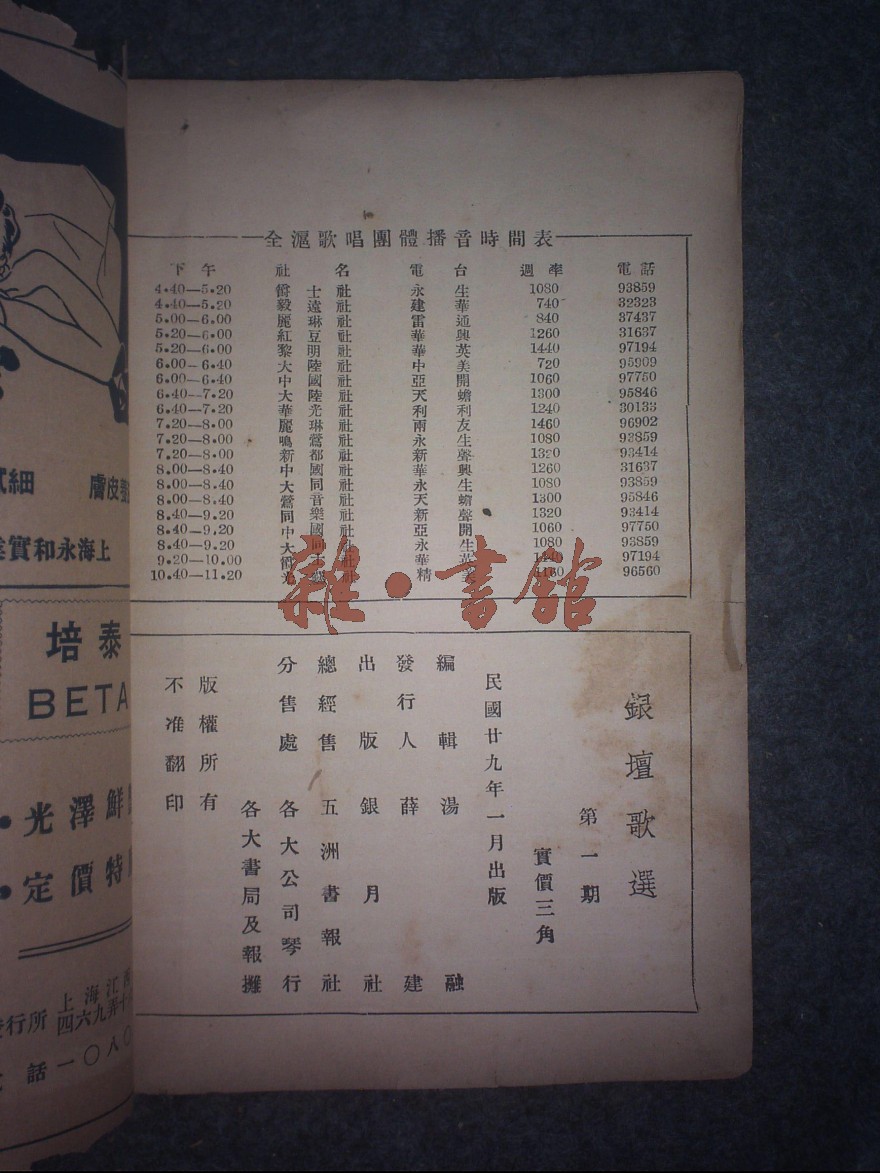 全滬歌唱團體播音時間表
下午 社名 電台 週率 電話
4.40—5.20 爵士社 永生 1080 93859
4.40—5.20 毅遠社 建華 740 32323
5.00—6.00 麗琳社 雷通 840 37437
5.20—6.00 紅豆社 華興 1260 31637
5.20—6.00 黎明社 華英 1440 97194
6.00—6.40 大陸社 中美 720 95909
6.00—6.40 中國社 亞開 1060 97750
6.40—7.20 大陸社 天蟾 1300 95846
6.40—7.20 華光社 利利 1240 30133
7.20—8.00 麗琳社 兩友 1460 96902
7.20—8.00 鳴鶯社 永生 1080 93859
7.20—8.00 新都社 新聲 1320 93414
8.00—8.40 中國社 華興 1260 31637
8.00—8.40 大同社 永生 1080 93859
8.00—8.40 鶯音社 天蟾 1300 95846
8.40—9.20 同樂社 新聲 1320 93414
8.40—9.20 中國社 亞開 1060 97750
8.40—9.20 大同社 永生 1080 93859
9.20—10.00 爵士社 華英 97194
10.40—11.20 社 精美 1160 96560
雜·書館
銀壇歌選
第一期
實價三角
民國廿九年一月出版
編輯 湯融
發行人 薛建
出版 銀月社
總經售 五洲書報社
分售處 各大公司琴行
各大書局及報攤
版權所有
不准翻印
細 膚皮
上海永和實
培泰
BETA
光澤鮮
定價特
上海江
行所 四六九弄十
話一〇八〇